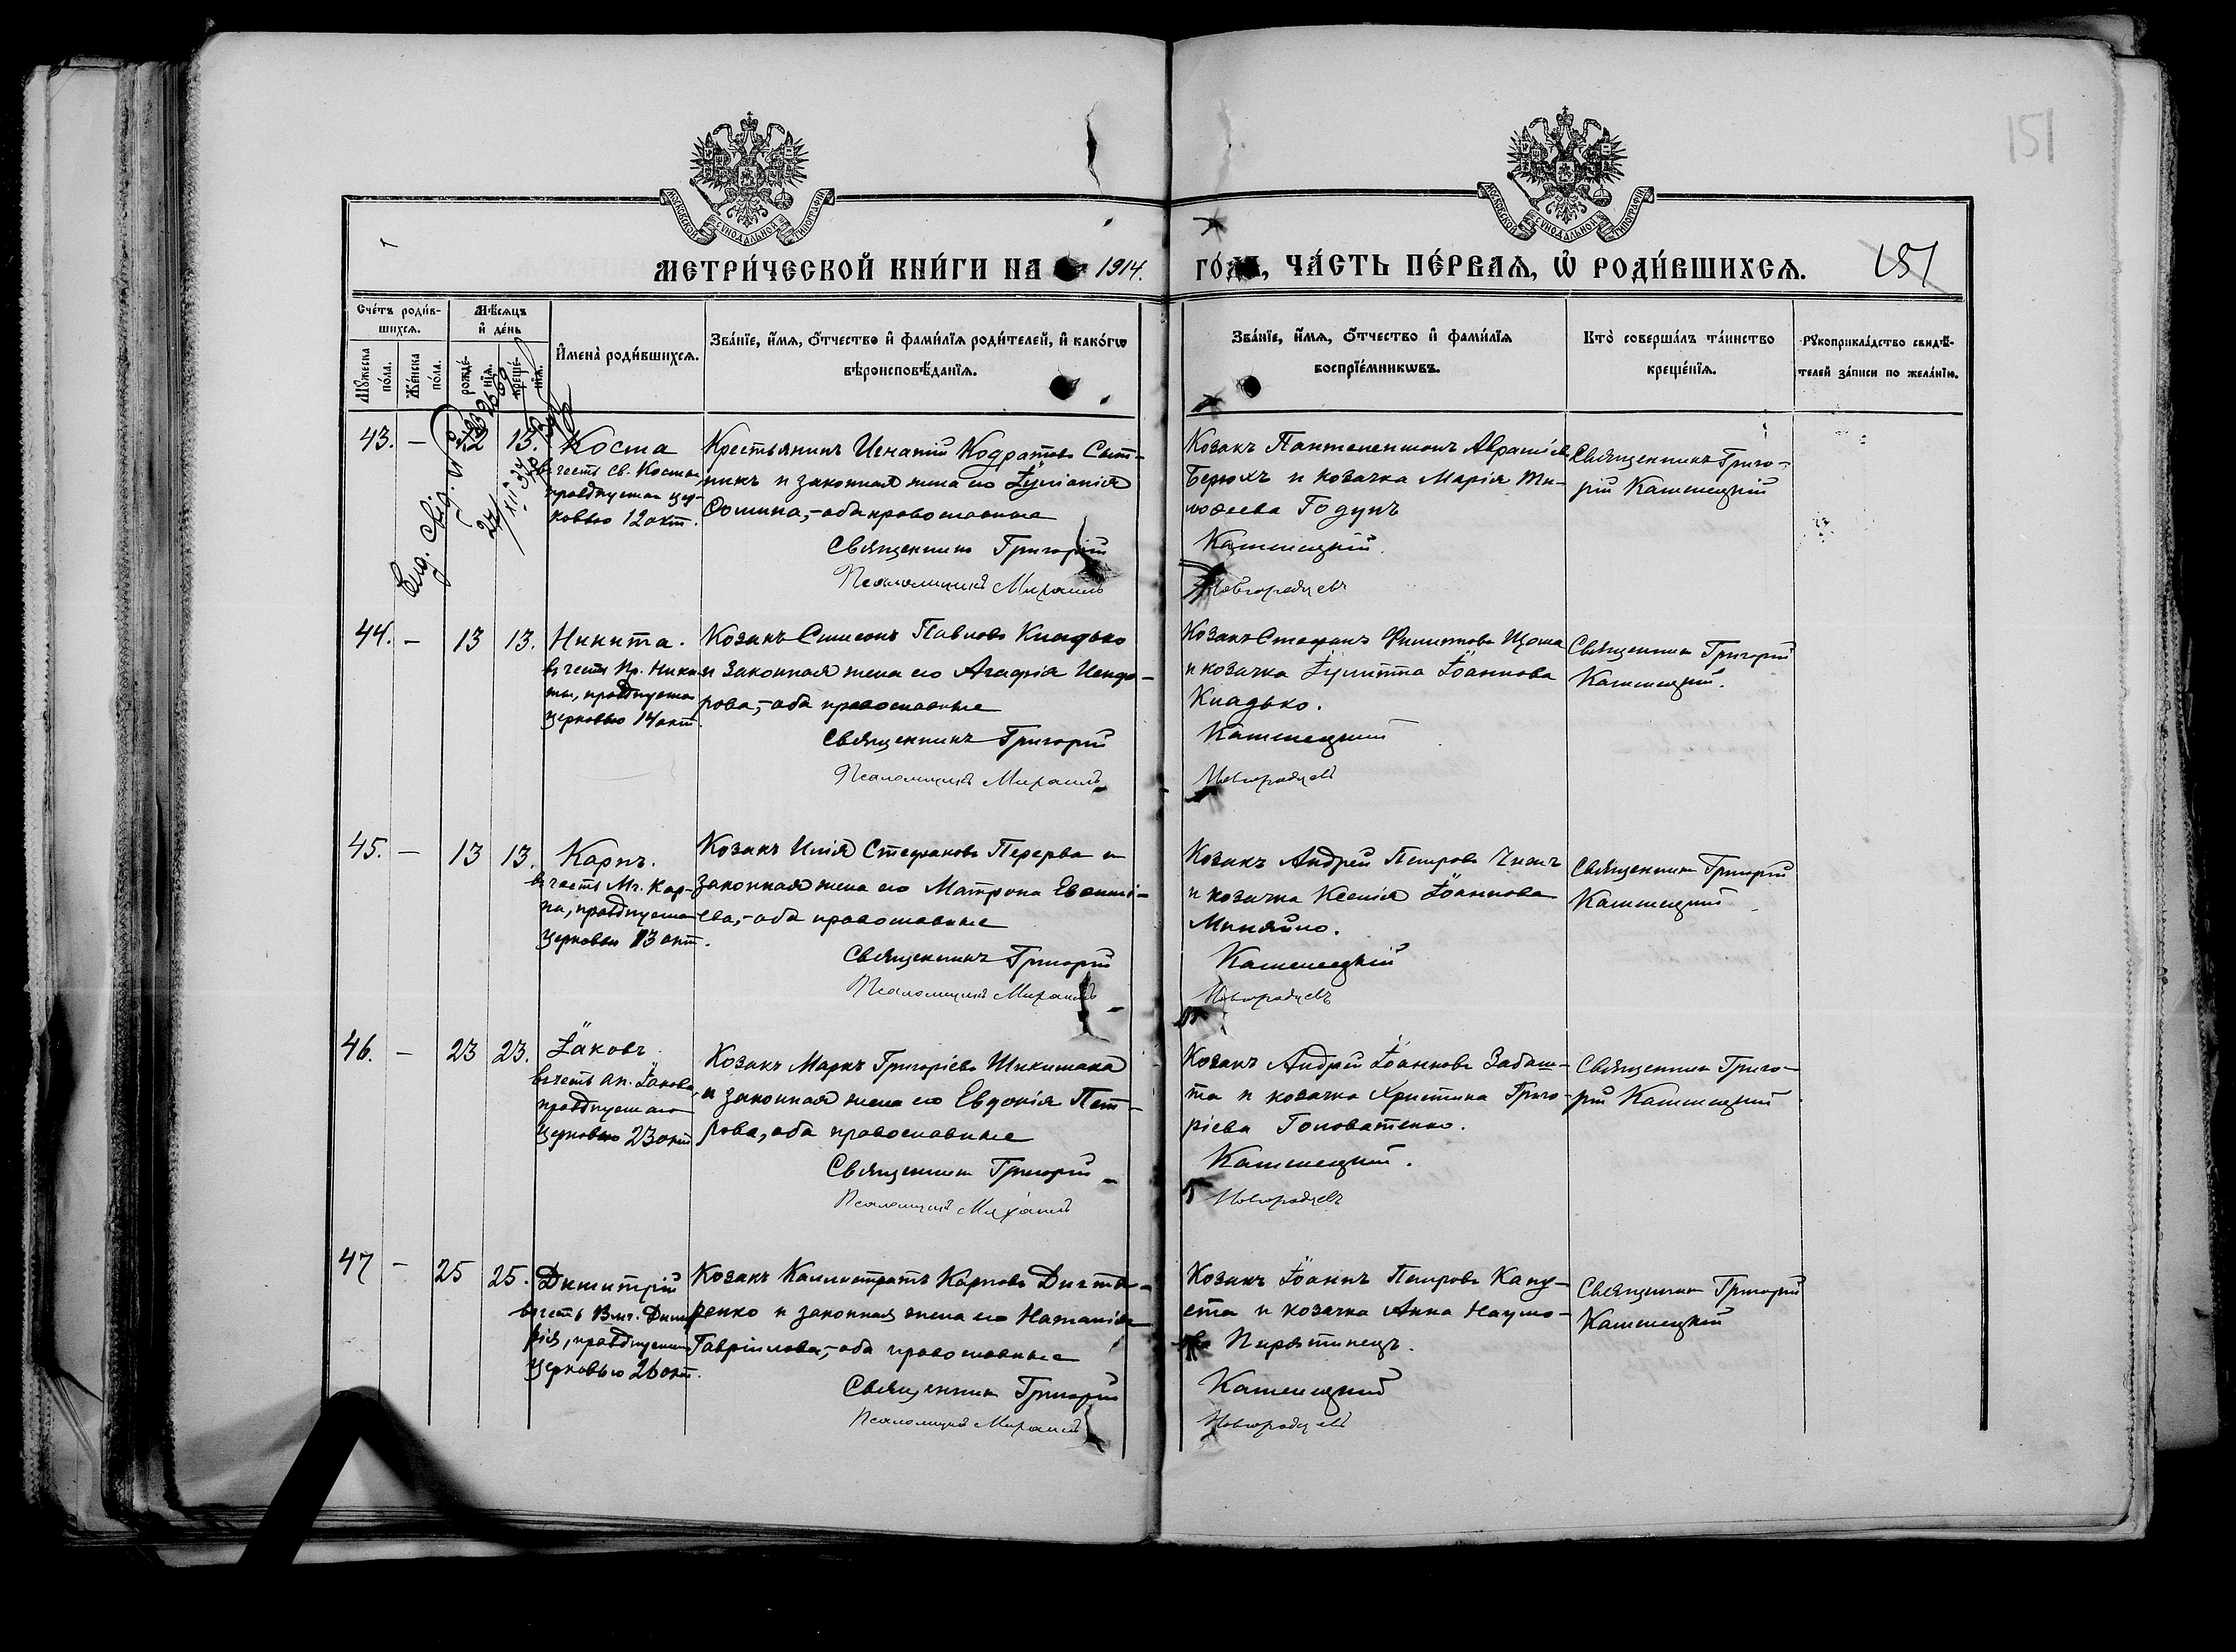 151
МОСКОВСКОЙ СѴНОДАЛЬНОЙ ТИПОГРАФІИ
МОСКОВСКОЙ СѴНОДАЛЬНОЙ ТИПОГРАФІИ
МЕТРИ́ЧЕСКОЙ КНИ́ГИ НА 1914. ГО́ДА, ЧА́СТЬ ПЕ́РВАЯ, Ѡ РОДИ́ВШИХСЯ. 151
Сче́тъ роди́в-
шихся.
Мꙋжеска по́ла.
Же́нска по́ла.
Мѣ́сяцъ и де́нь
рожде́-нїя.
креще́-нїя.
И҆мена̀ роди́вшихся.
Зва́нїе, и҆́мя, ѻ҆́тчество и҆ фами́лїя роди́телей, и҆ како́гѡ
вѣроисповѣ́данїя.
Зва́нїе, и҆́мя, ѻ҆́тчество и҆ фами́лїя
воспрїе́мникѡвъ.
Кто̀ соверша́лъ та́инство
креще́нїя.
Рꙋкоприкла́дство свидѣ́-
телей за́писи по жела́нїю.
43. — 12 13. Косма
въ честь св. Космы,
празднуемаго цер-
ковью 12 окт.
Крестьянинъ Игнатій Кодратовъ Сыт-
никъ и законная жена его Іуліанія
Ѳомина,-оба православные
Священникъ Григорій
Псаломщикъ Михаилъ
Козакъ Пантелеимонъ
и козачка Марія Ти-
моѳеева Годунъ
Кашменскій
Новгородцевъ
Священникъ Григо-
рій
44. — 13 13. Никита.
въ честь Пр. Ники-
ты, празднуемаго
церковью 14 окт.
Козакъ Симеонъ Павловъ Кладько
и законная жена его Агафія Исидо-
рова,-оба православные
Священникъ Григорій
Псаломщикъ Михаилъ
Козакъ Стефанъ Филиповъ
и козачка Іулитта Іоаннова
Кладько.
Новгородцевъ
Священникъ Григорій
45. — 13 13. Карпъ.
въ честь Мч. Кар-
па, празднуемаго
церковью 13 окт.
Козакъ Илія Стефановъ Перерва и
законная жена его Матрона Евѳимі-
ева,-оба православные
Священникъ Григорій
Псаломщикъ Михаилъ
Козакъ Андрей Петровъ Чижъ
и козачка Ксенія Іоаннова
Миняйло.
Новгородцевъ
Священникъ Григорій
46. — 23 23. Іаковъ
въ честь ап. Іакова,
празднуемаго
церковью 23 окт.
Козакъ Маркъ Григоріевъ
и законная жена его Евдокія Пет-
рова, оба православные
Священникъ Григорій
Псаломщикъ Михаилъ
Козакъ Андрей Іоанновъ Забаш-
та и козачка Христина Григо-
ріева Головатенко.
Новгородцевъ
Священникъ Григо-
рій
47 — 25 25. Димитрій
въ честь Влмч. Димит-
рія, празднуемаго
церковью 26 окт.
Козакъ Каллистратъ Карповъ Дихта-
ренко и законная жена его Наталія
Гавріилова,-оба православные
Священникъ Григорій
Псаломщикъ Михаилъ
Козакъ Іоаннъ Петровъ Капу-
ста и козачка Анна Наумо-
ва Пирятинецъ.
Новгородцевъ
Священникъ Григорій